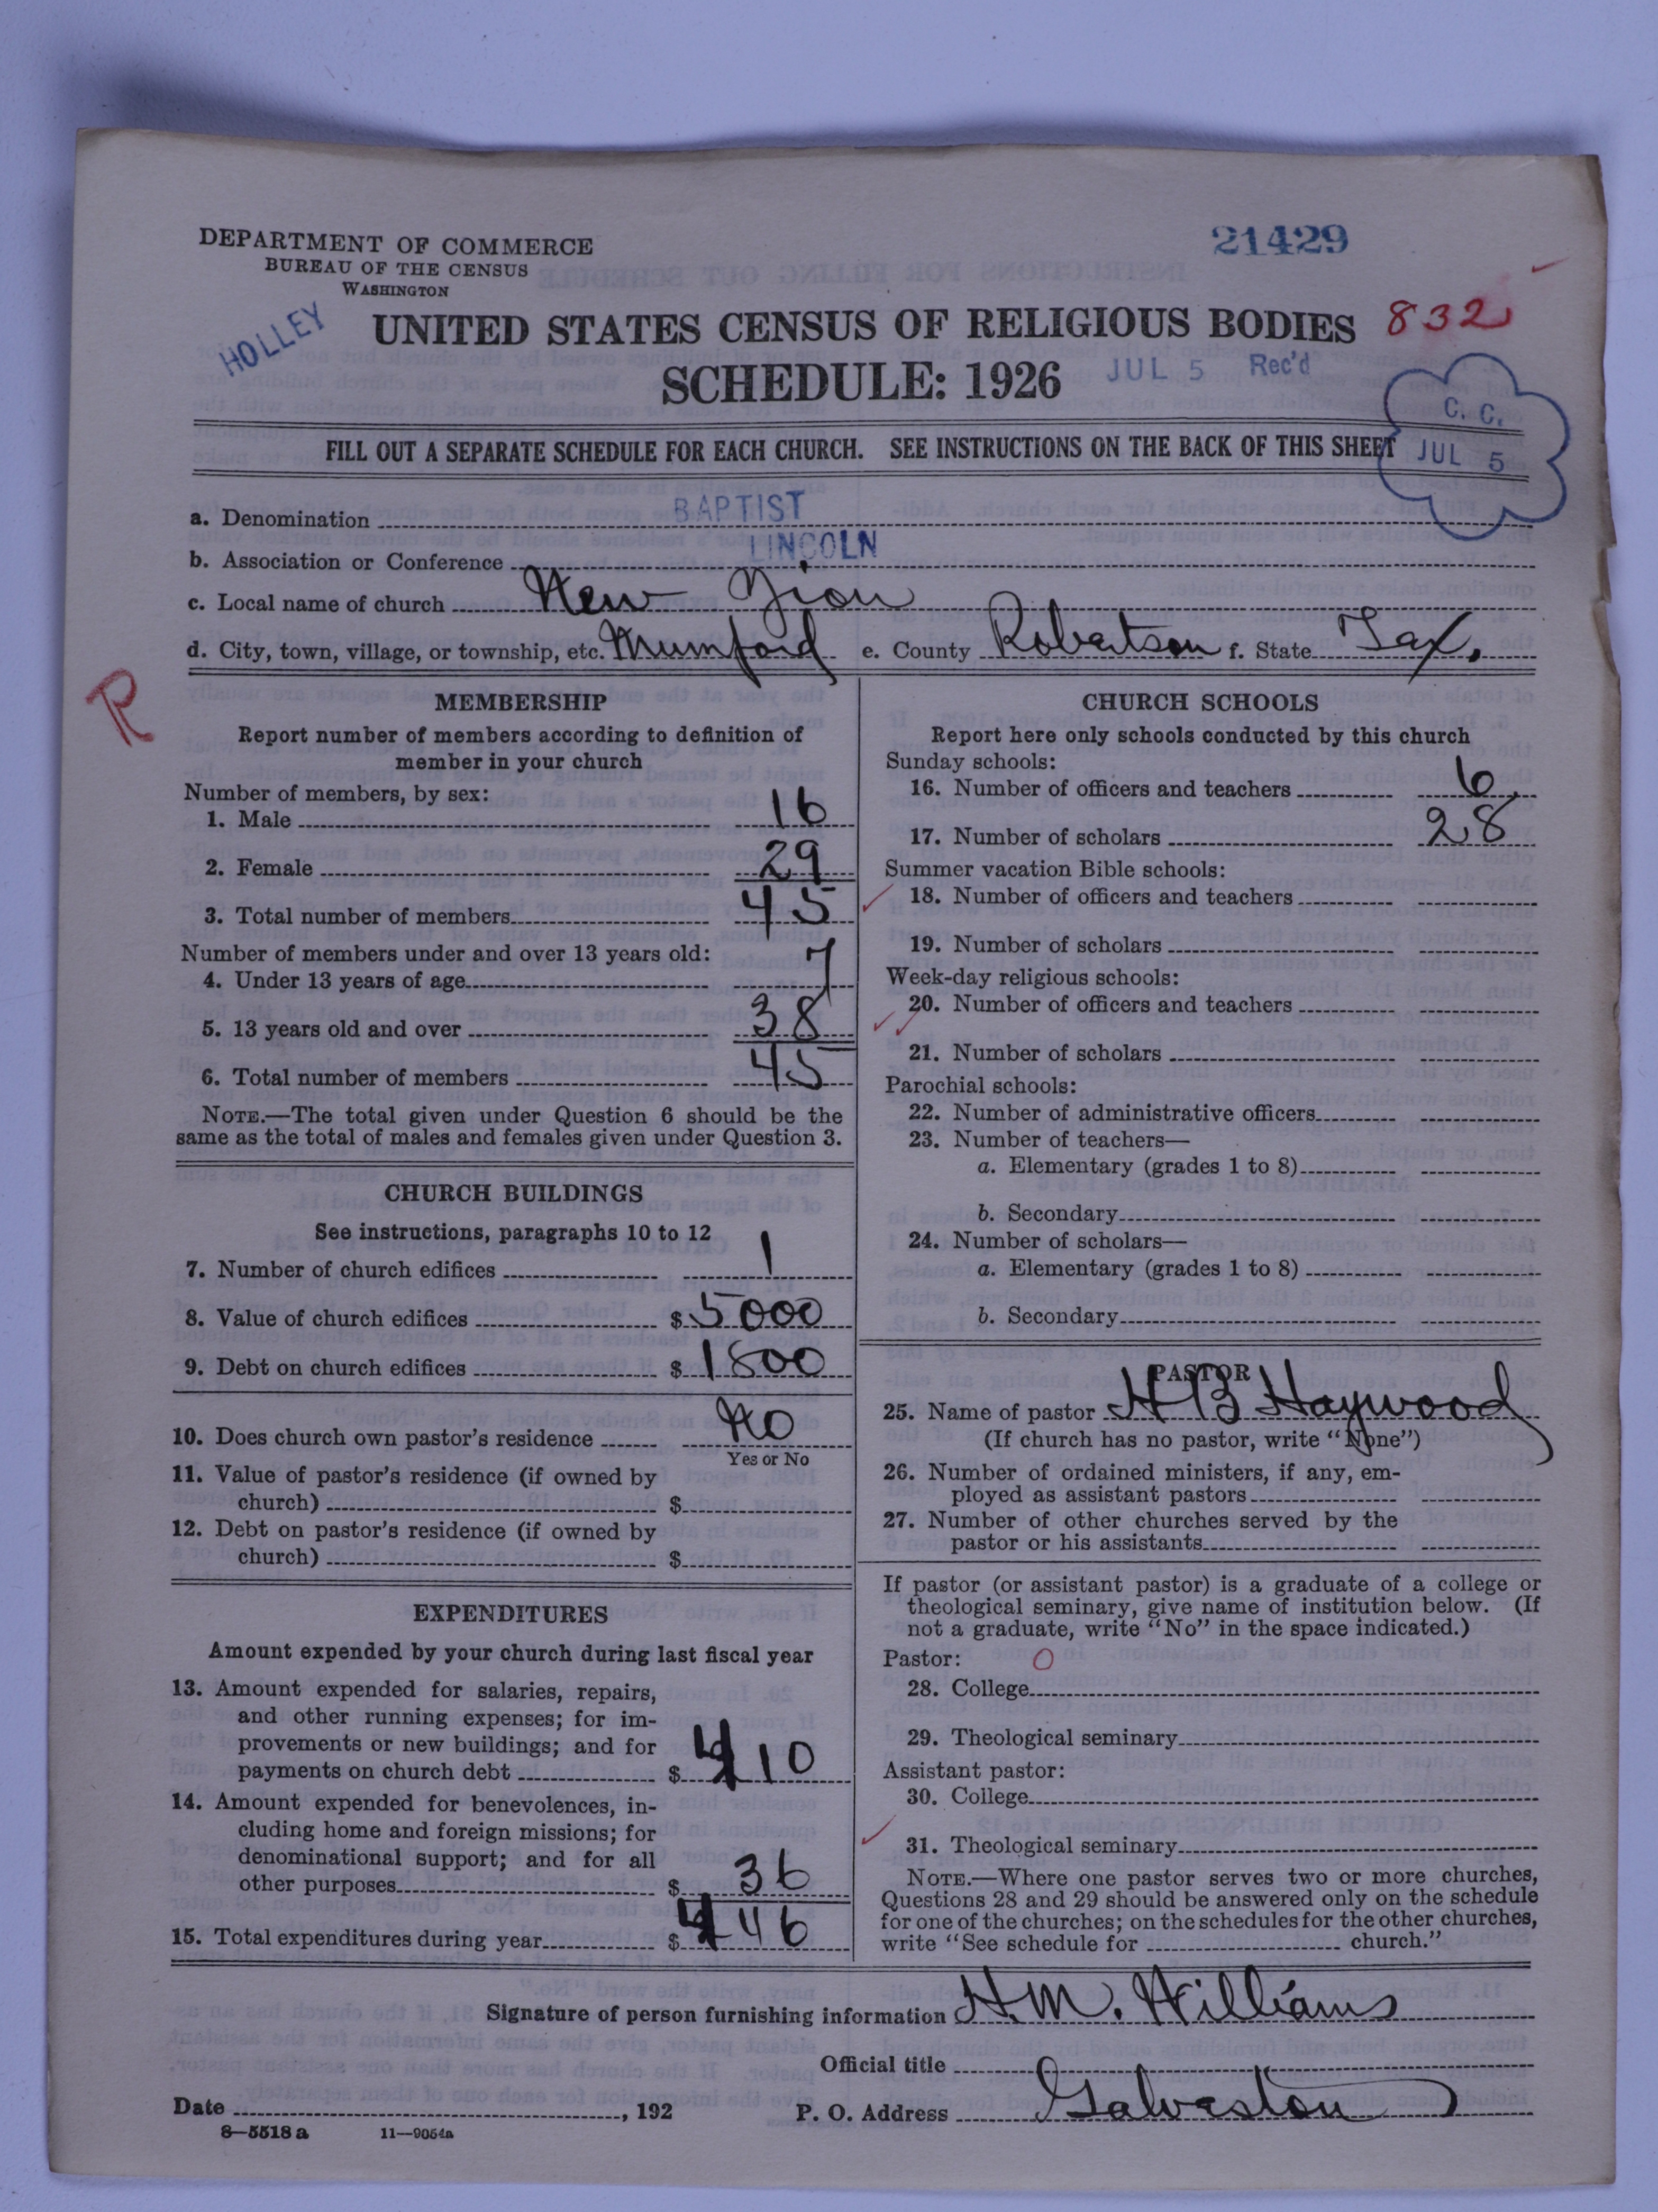 DEPARTMENT OF COMMERCE
BUREAU OF THE CENSUS
WASHINGTON
21429
HOLLEY
UNITED STATES CENSUS OF RELIGIOUS BODIES
832
SCHEDULE: 1926
JUL 5 Rec'd
C. C.
JUL 5
FILL OUT A SEPARATE SCHEDULE FOR EACH CHURCH. SEE INSTRUCTIONS ON THE BACK OF THIS SHEET
a. Denomination BAPTIST
b. Association or Conference LINCOLN
c. Local name of church New Zion
d. City, town, village, or township, etc. Mumford e. County Robertson f. State Tex.
R
MEMBERSHIP
Report number of members according to definition of
member in your church
Number of members, by sex:
1. Male 16
2. Female 29
3. Total number of members 45
Number of members under and over 13 years old:
4. Under 13 years of age 7
5. 13 years old and over 38
6. Total number of members 45
NOTE.—The total given under Question 6 should be the
same as the total of males and females given under Question 3.
CHURCH BUILDINGS
See instructions, paragraphs 10 to 12
7. Number of church edifices 1
8. Value of church edifices $ 5000
9. Debt on church edifices $ 1800
10. Does church own pastor's residence No
Yes or No
11. Value of pastor's residence (if owned by
church) $
12. Debt on pastor's residence (if owned by
church) $
EXPENDITURES
Amount expended by your church during last fiscal year
13. Amount expended for salaries, repairs,
and other running expenses; for im-
provements or new buildings; and for
payments on church debt $ 410
14. Amount expended for benevolences, in-
cluding home and foreign missions; for
denominational support; and for all
other purposes $ 36
15. Total expenditures during year $ 446
CHURCH SCHOOLS
Report here only schools conducted by this church
Sunday schools:
16. Number of officers and teachers 6
17. Number of scholars 28
Summer vacation Bible schools:
18. Number of officers and teachers
19. Number of scholars
Week-day religious schools:
20. Number of officers and teachers
21. Number of scholars
Parochial schools:
22. Number of administrative officers
23. Number of teachers—
a. Elementary (grades 1 to 8)
b. Secondary
24. Number of scholars—
a. Elementary (grades 1 to 8)
b. Secondary
PASTOR
25. Name of pastor H B Haywood
(If church has no pastor, write "None")
26. Number of ordained ministers, if any, em-
ployed as assistant pastors
27. Number of other churches served by the
pastor or his assistants
If pastor (or assistant pastor) is a graduate of a college or
theological seminary, give name of institution below. (If
not a graduate, write "No" in the space indicated.)
Pastor: O
28. College
29. Theological seminary
Assistant pastor:
30. College
31. Theological seminary
NOTE.—Where one pastor serves two or more churches,
Questions 28 and 29 should be answered only on the schedule
for one of the churches; on the schedules for the other churches,
write "See schedule for church."
Signature of person furnishing information H.M. Williams
Official title
Date , 192 P. O. Address Galveston
8—5518 a 11—9054a